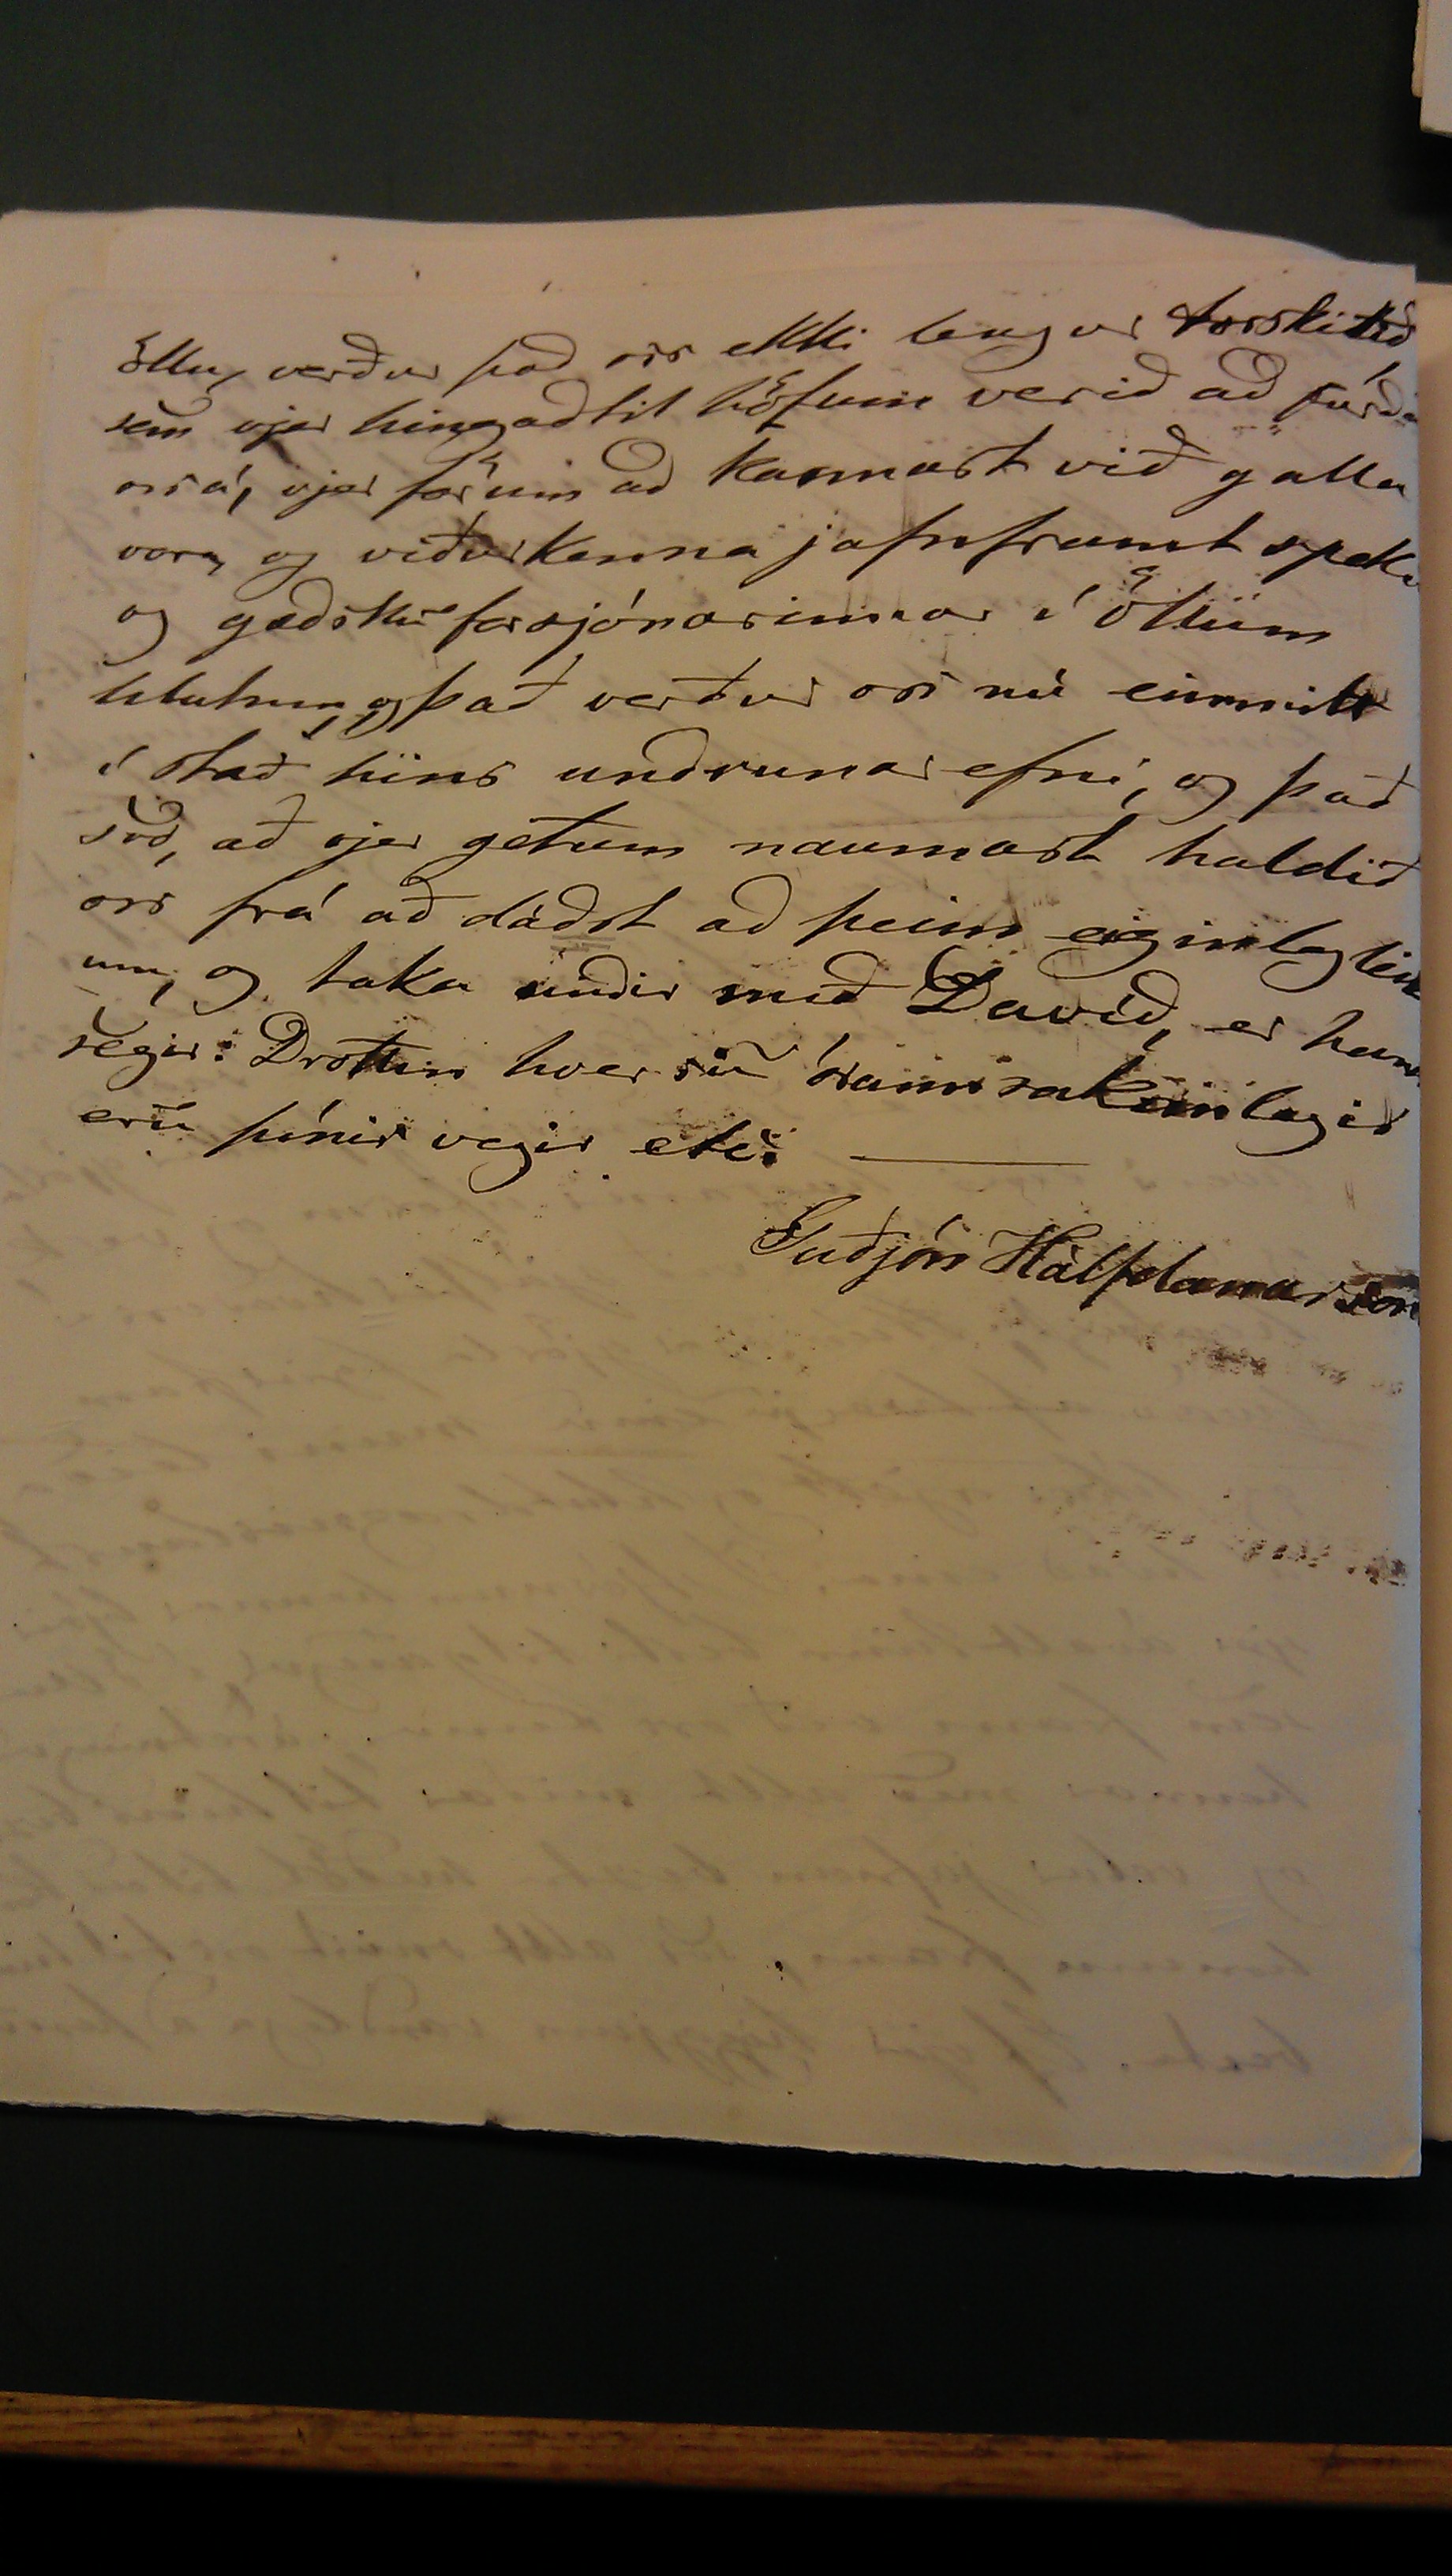 öllu, verður það oss ekki lengur torskilið,
sem vjer hingaðtil höfum verið að furða
oss á, vjer förum að kannast við galla
vora, og viðurkenna jafnframt speki
og gæðsku forsjónarinnar í öllum
hlutum, og það verður oss nú einmitt
í stað hins undrunarefni, og það
svo, að vjer getum naumast haldið
oss frá að dáðst að þeim eiginlegleik
um, og taka undir með Davíð, er hann
segir: Drottin hversu órannsakanlegir
eru þínir vegir etc. —
Guðjón Hálfdanarson